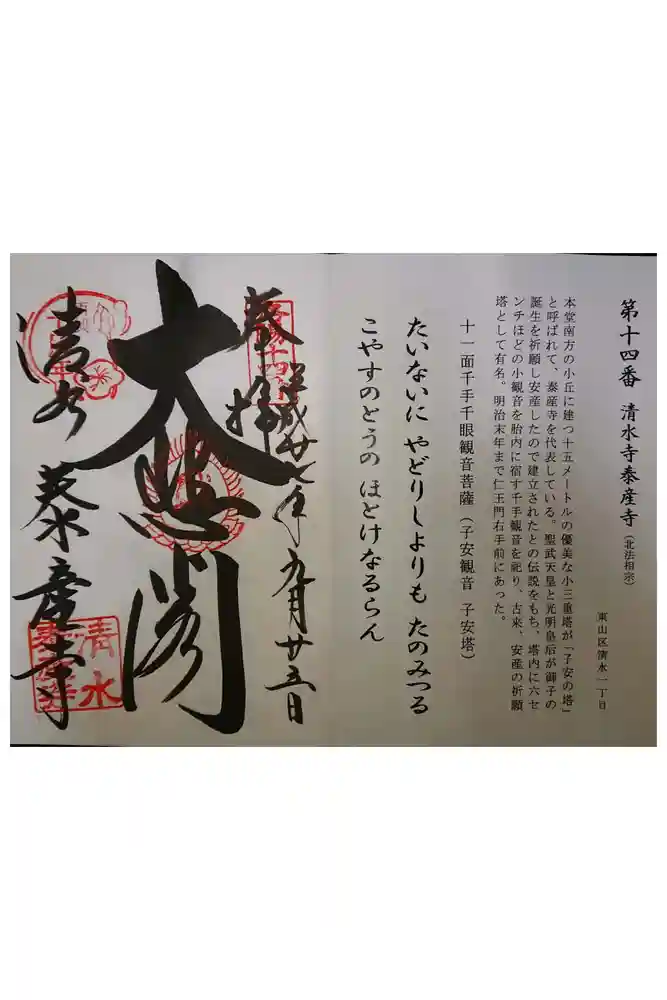 第十四番 清水寺泰産寺(北法相宗)
東山区清水一丁目
本堂南方の小丘に建つ十五メートルの優美な小三重塔が「子安の塔」
と呼ばれて、泰産寺を代表している。聖武天皇と光明皇后が御子の
誕生を祈願し安産したので建立されたとの伝説をもち、塔内に六セ
ンチほどの小観音を胎内に宿す千手観音を祀り、古来、安産の祈願
塔として有名。明治末年まで仁王門右手前にあった。
十一面千手千眼観音菩薩(子安観音 子安塔)
たいないに やどりしよりも たのみつる
こやすのとうの ほとけなるらん
奉拝
平成廿七年九月廿五日
大悲閣
清水 泰産寺
清水
泰産寺